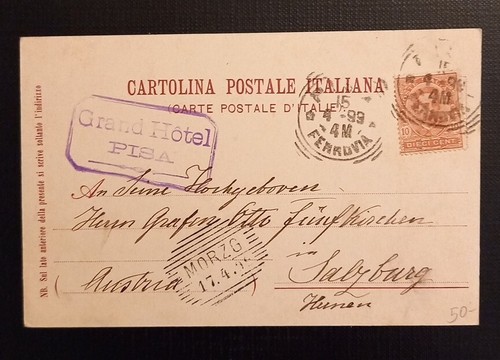 CARTOLINA POSTALE ITALIANA
(CARTE POSTALE D'ITALIE)
Grand Hôtel
PISA
15
4-99
4M
FERROVIA
15
4-99
4M
10
DIECI CENT
An Seine Hochgeboren
Herrn Grafen Otto Fünfkirchen
in
Salzburg
(Austria)
MORZG
17.4.
50-
NB. Sul lato anteriore della presente si scrive soltanto l'indirizzo